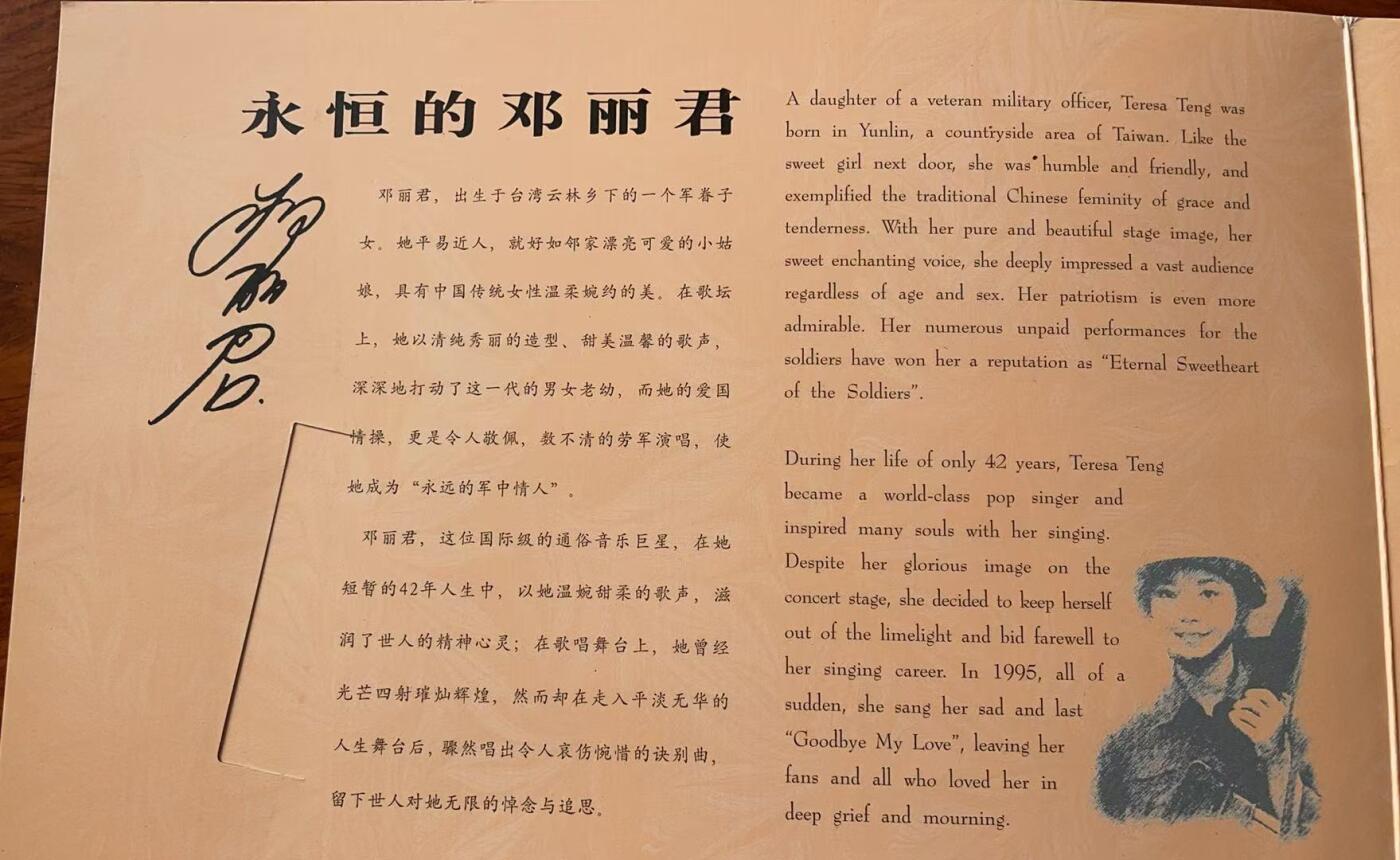 永恒的邓丽君
邓丽君
邓丽君，出生于台湾云林乡下的一个军眷子
女。她平易近人，就好如邻家漂亮可爱的小姑
娘，具有中国传统女性温柔婉约的美。在歌坛
上，她以清纯秀丽的造型、甜美温馨的歌声，
深深地打动了这一代的男女老幼，而她的爱国
情操，更是令人敬佩，数不清的劳军演唱，使
她成为“永远的军中情人”。
邓丽君，这位国际级的通俗音乐巨星，在她
短暂的42年人生中，以她温婉甜柔的歌声，滋
润了世人的精神心灵；在歌唱舞台上，她曾经
光芒四射璀灿辉煌，然而却在走入平淡无华的
人生舞台后，骤然唱出令人哀伤惋惜的诀别曲，
留下世人对她无限的悼念与追思。
A daughter of a veteran military officer, Teresa Teng was
born in Yunlin, a countryside area of Taiwan. Like the
sweet girl next door, she was humble and friendly, and
exemplified the traditional Chinese feminity of grace and
tenderness. With her pure and beautiful stage image, her
sweet enchanting voice, she deeply impressed a vast audience
regardless of age and sex. Her patriotism is even more
admirable. Her numerous unpaid performances for the
soldiers have won her a reputation as “Eternal Sweetheart
of the Soldiers”.
During her life of only 42 years, Teresa Teng
became a world-class pop singer and
inspired many souls with her singing.
Despite her glorious image on the
concert stage, she decided to keep herself
out of the limelight and bid farewell to
her singing career. In 1995, all of a
sudden, she sang her sad and last
“Goodbye My Love”, leaving her
fans and all who loved her in
deep grief and mourning.